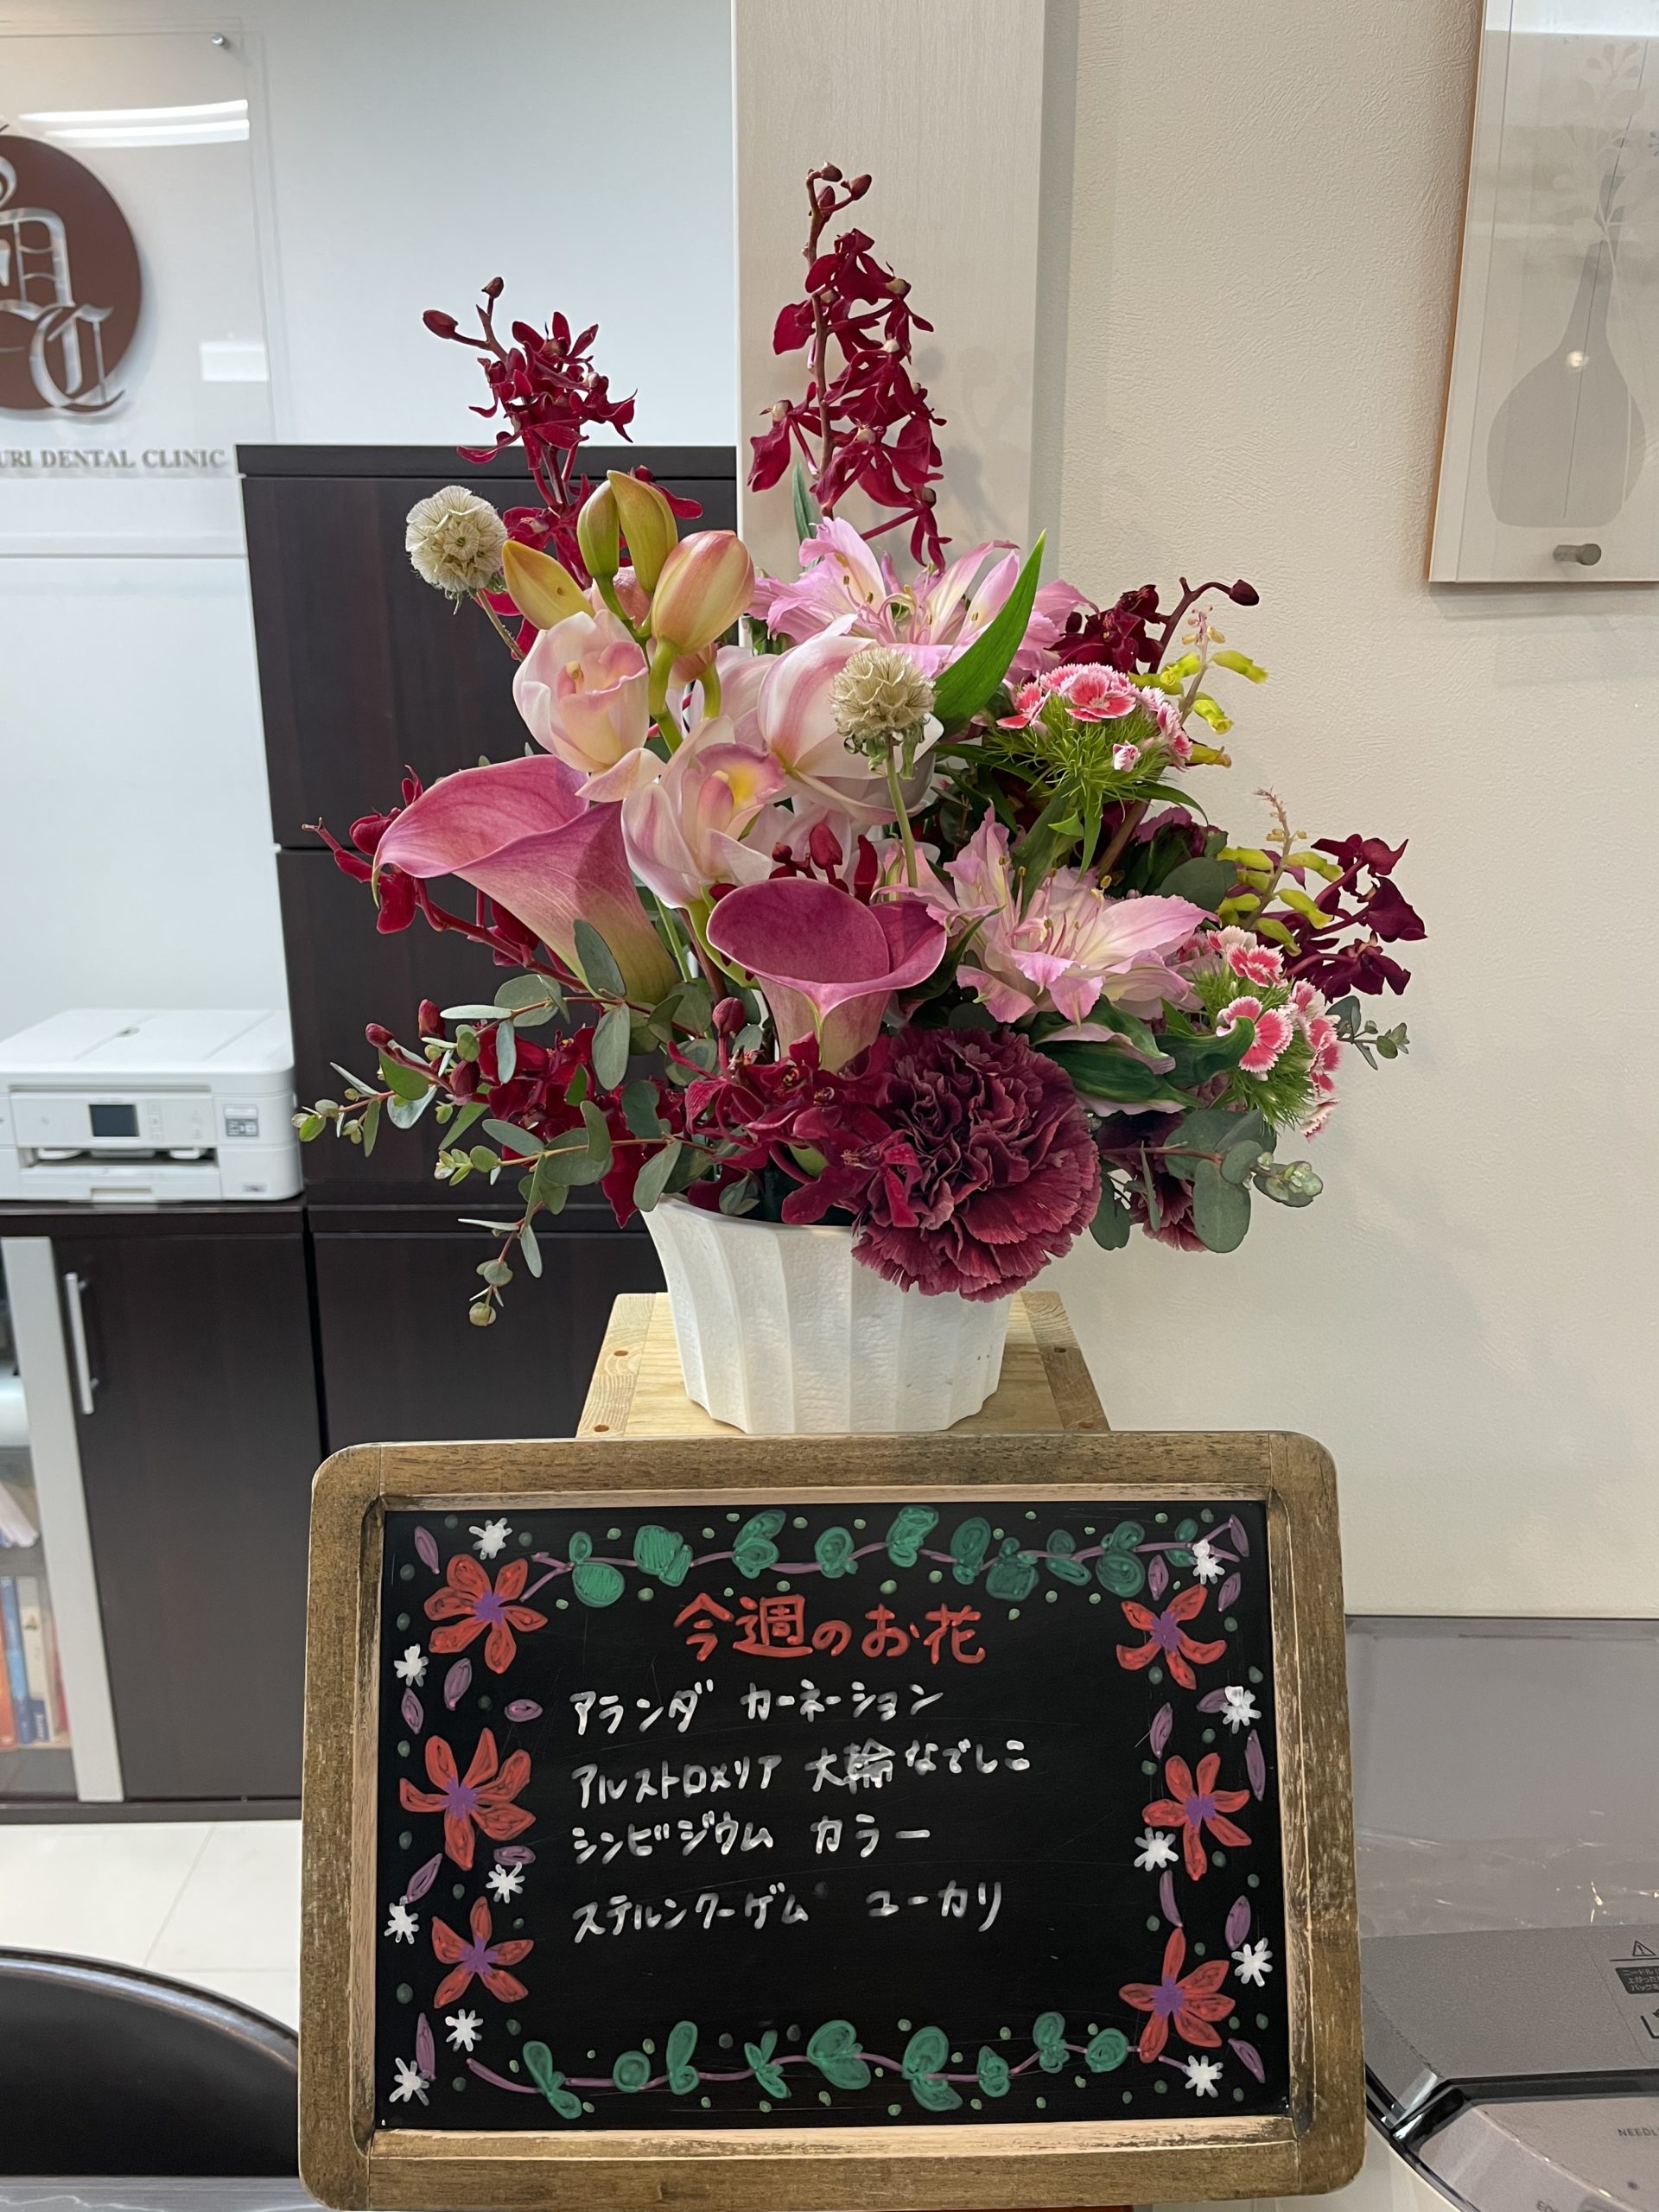 URI DENTAL CLINIC
今週のお花
アランダ カーネーション
アルストロメリア 大輪なでしこ
シンビジウム カラー
ステルンクーゲム ユーカリ